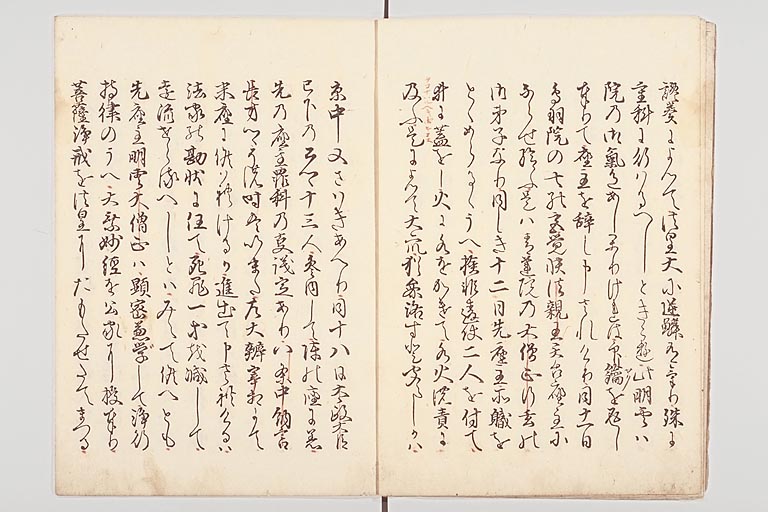 讒奏によつて法皇大に逆鱗有けり殊に
重科に行はるへしときこゆ此明雲ハ
院の御氣色あしかりけれは印鑰を返し
奉りて座主を辞し申されけり同十一日
鳥羽院の七の宮覚快法親王天台座主に
ならせ給ふ是ハ青蓮院の大僧正行玄の
御弟子なり同しき十二日先座主所職を
とゝめらるゝうへ検非違使二人を付て
井に蓋をし火に水をかけて水火の責に
及ふ是によつて大衆猶参洛すと聞えしかハ
京中又さわきあへり同十八日太政大臣
已下の公卿十三人参内して陣の座に着
先の座主罪科の事議定あり八条中納言
長方卿其時ハいまた左大辨宰相にて
末座に候はれけるか進出て申されけるハ
法家の勘状に任て死罪一等を減して
遠流せらるへしとハみえて候へとも
先座主明雲大僧正ハ顕密兼学して浄行
持律のうへ大乗妙經を公家に授奉り
菩薩浄戒を法皇にたもたせたてまつる